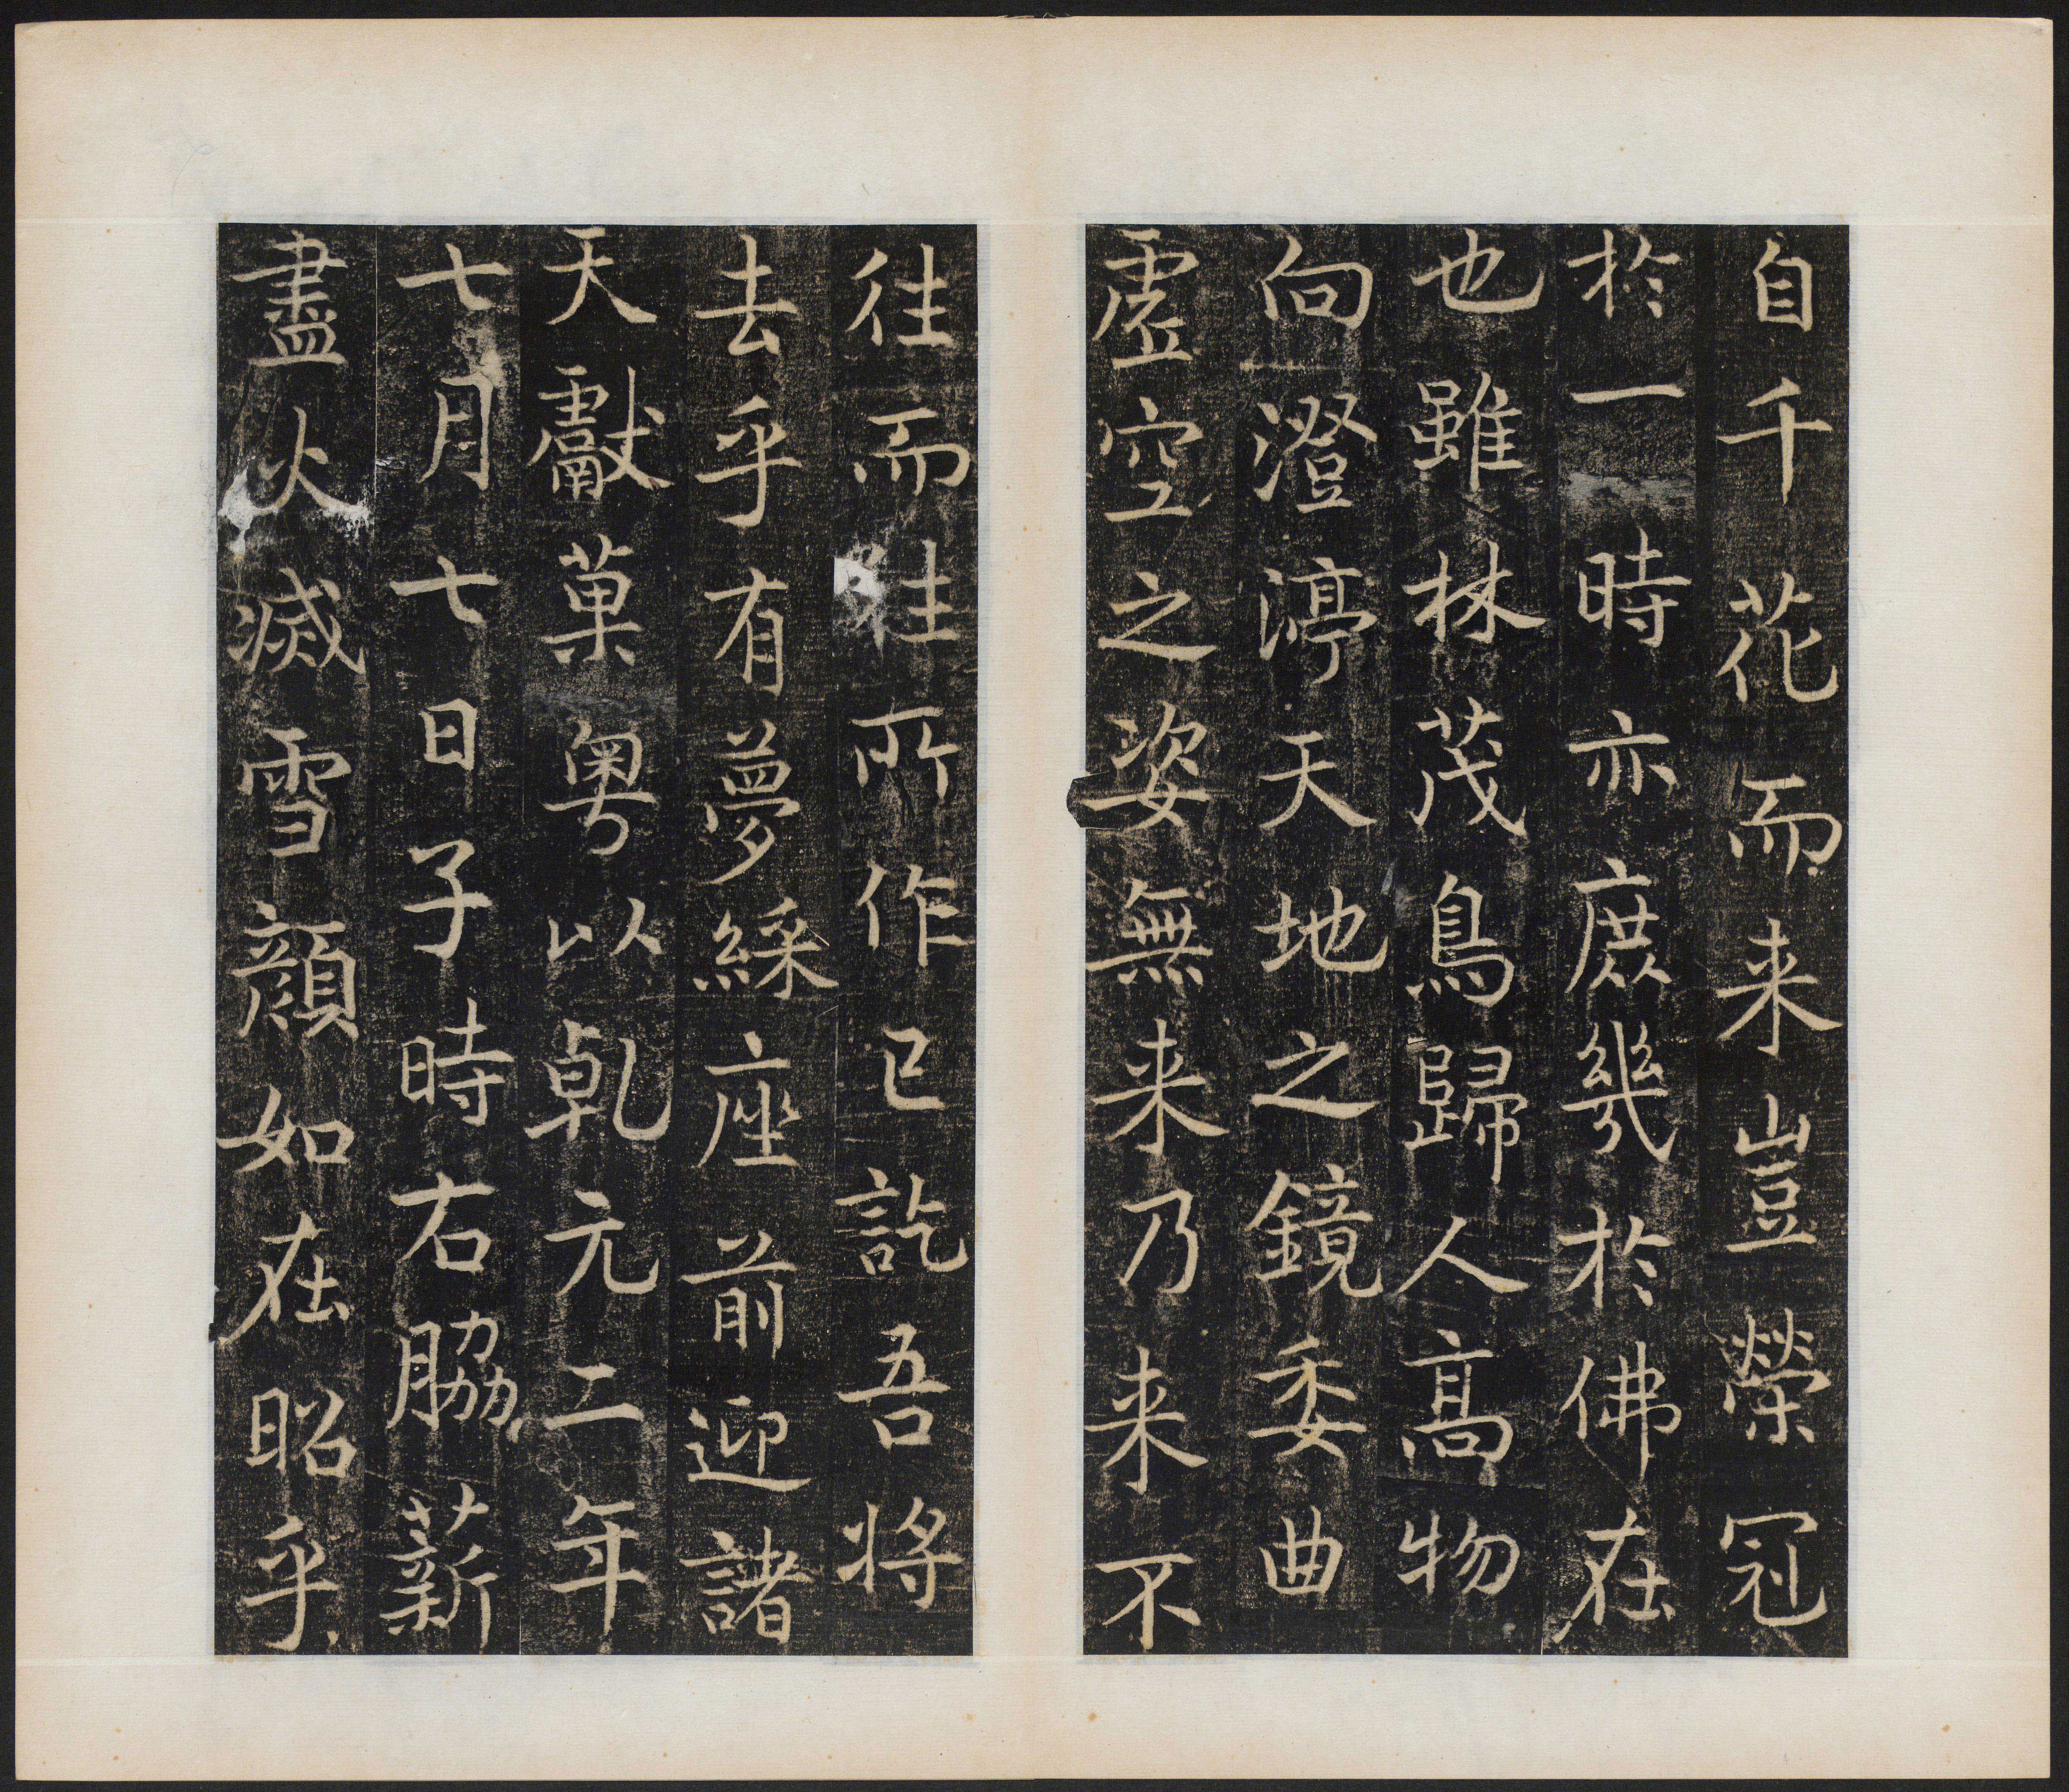 自千花而来豈榮冠
於一時亦庶幾於佛在
也雖林茂鳥歸人高物
向澄渟天地之鏡委曲
虛空之姿無来乃来不
往而往所作已訖吾将
去乎有夢綵座前迎諸
天獻菓粤以乹元二年
七月七日子時右脇薪
盡火滅雪顏如在昭乎